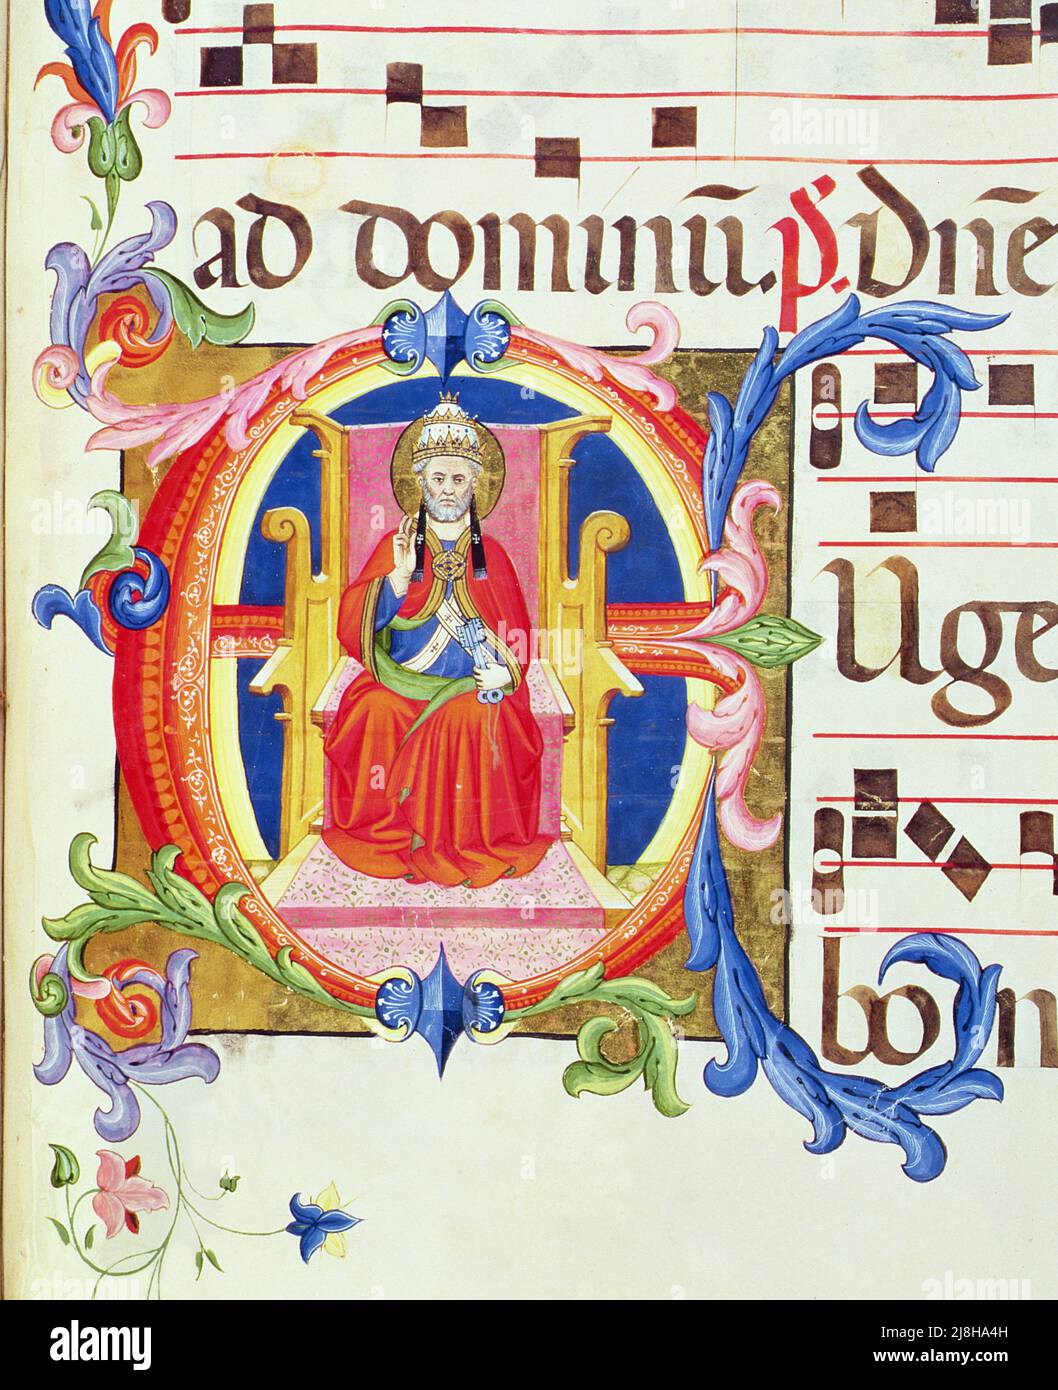 ad dominū. ps. dnē
EUge
bo n
alamy
Image ID: 2J8HA4H
www.alamy.com